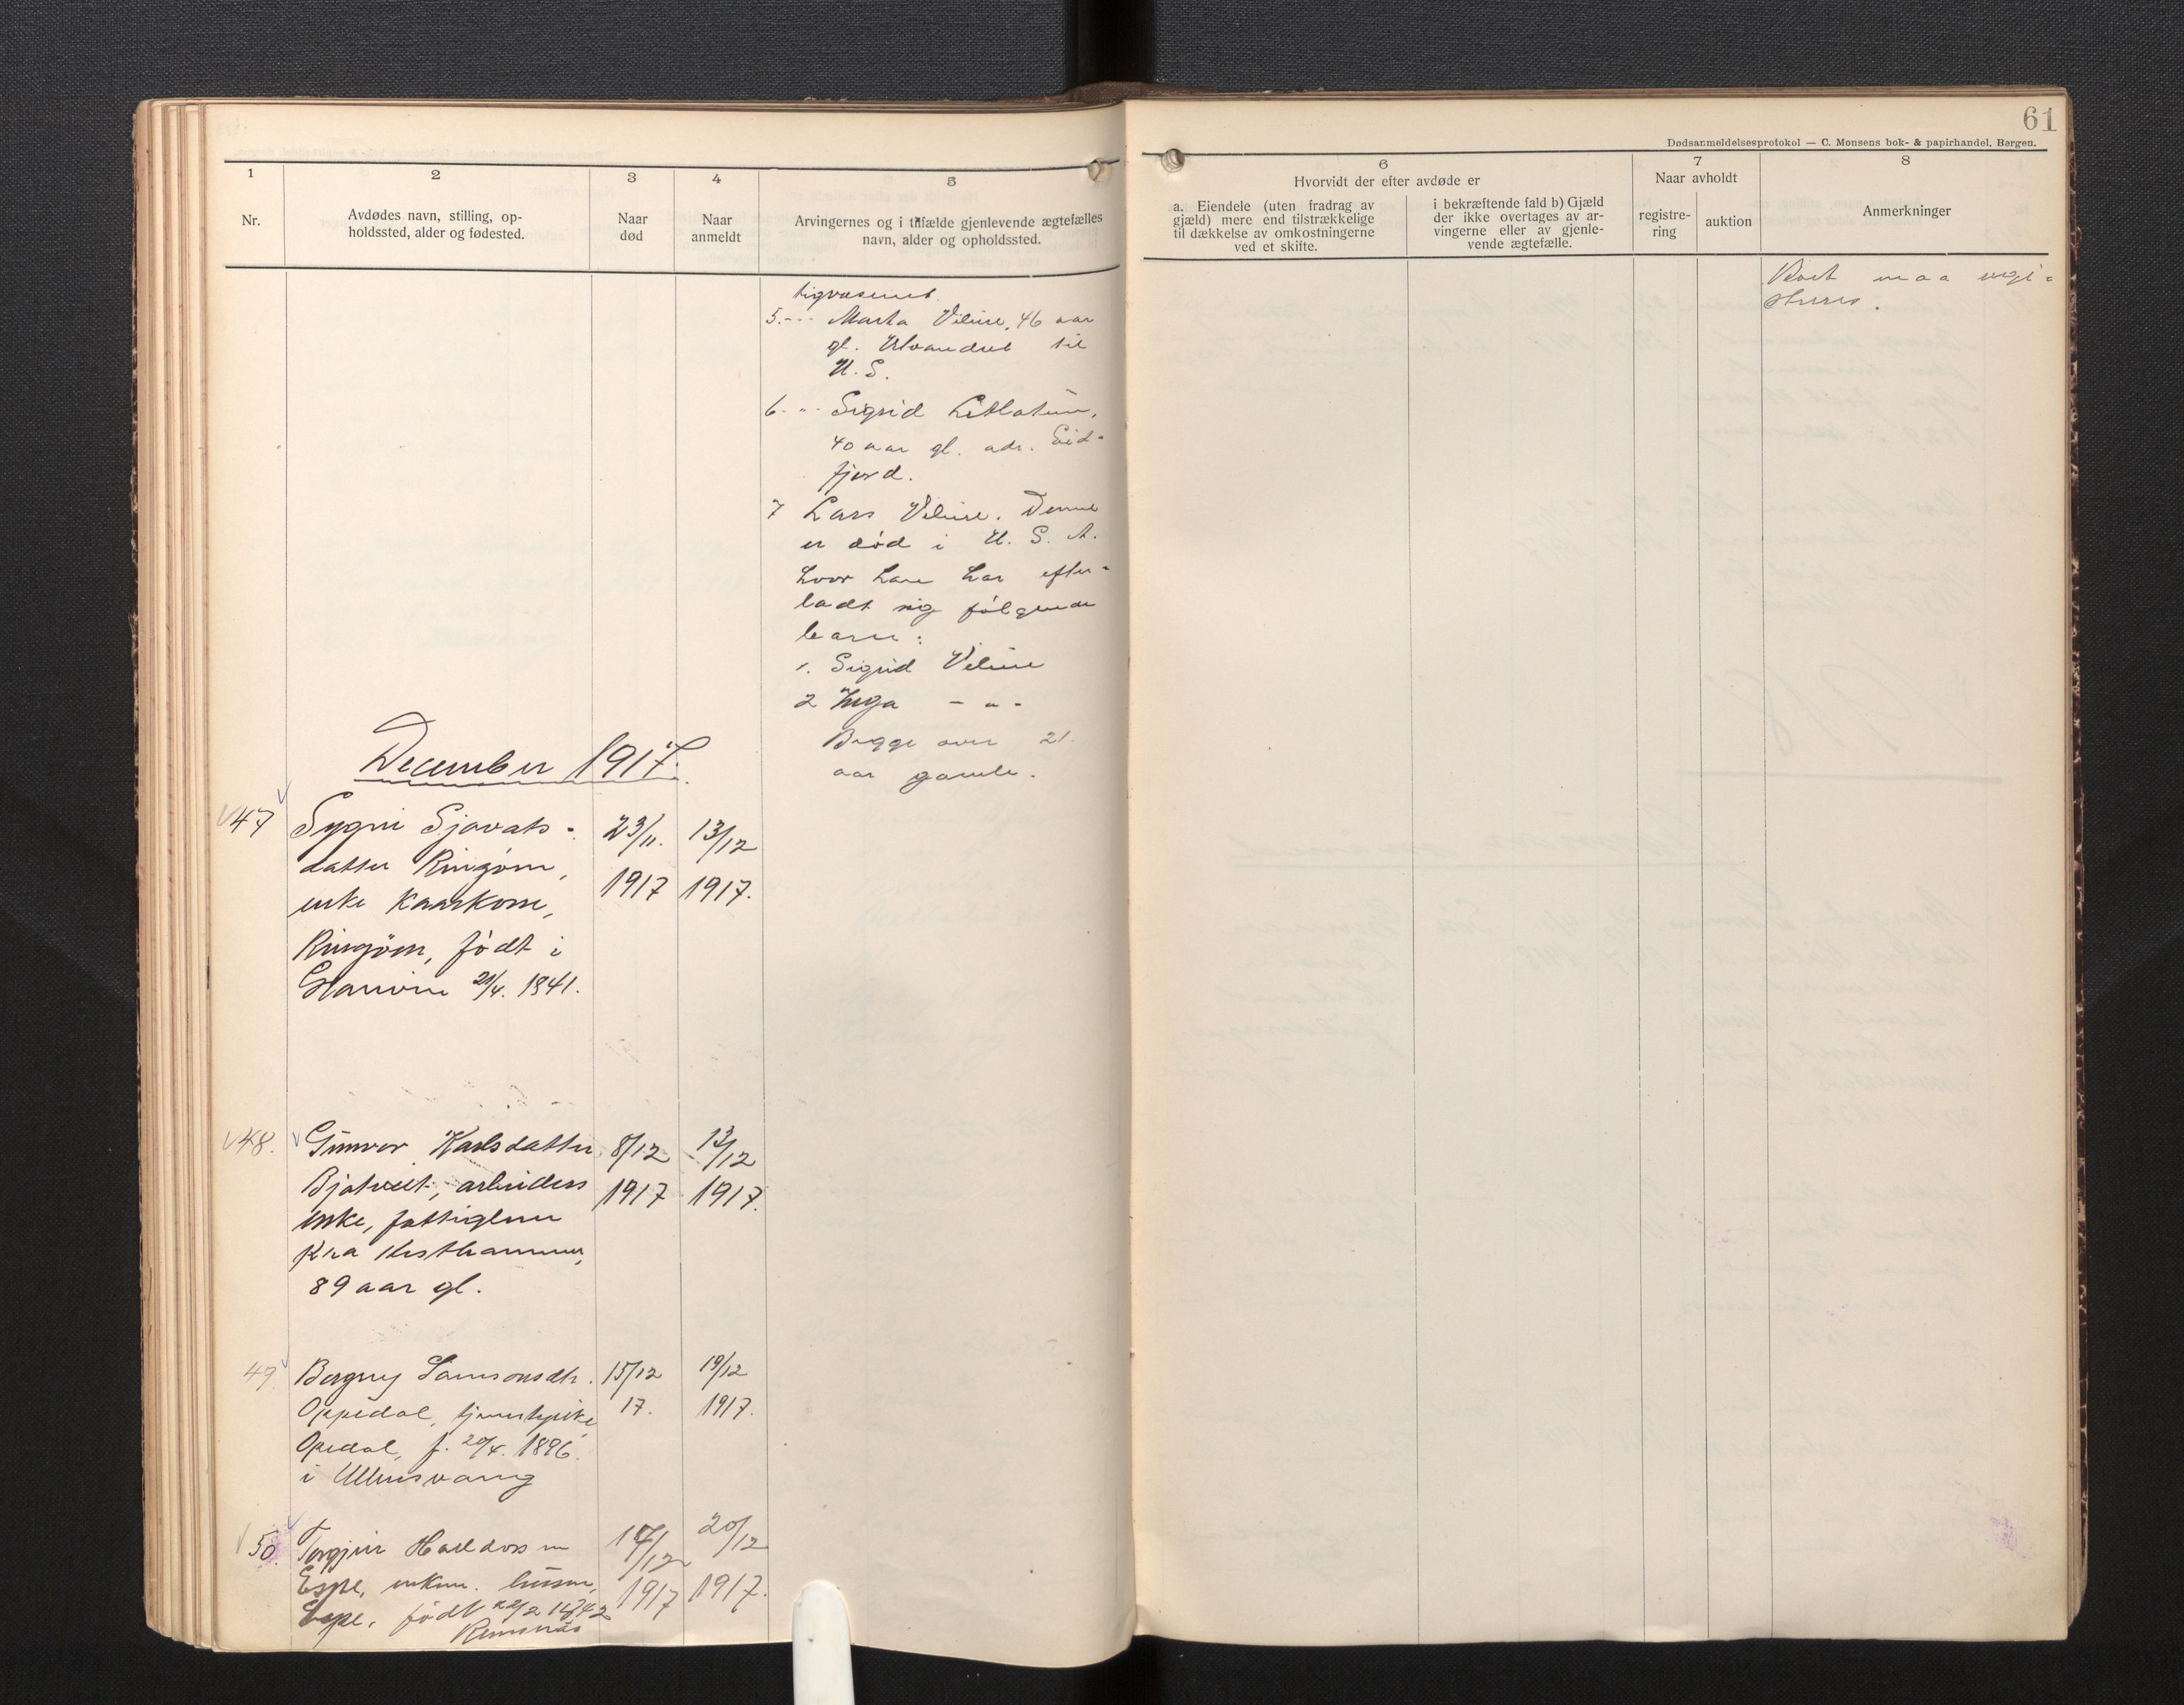 61
Dødsanmeldelsesprotokol — C. Monsens bok- & papirhandel, Bergen.
1
2
3
4
5
6
7
8
Nr.
Avdødes navn, stilling, op-
holdssted, alder og fødested.
Naar
død
Naar
anmeldt
Arvingernes og i tilfælde gjenlevende ægtefælles
navn, alder og opholdssted.
Hvorvidt der efter avdøde er
a. Eiendele (uten fradrag av
gjæld) mere end tilstrækkelige
til dækkelse av omkostningerne
ved et skifte.
i bekræftende fald b) Gjæld
der ikke overtages av ar-
vingerne eller av gjenle-
vende ægtefælle.
Naar avholdt
registre-
ring
auktion
Anmerkninger
5. Marta Velure, 46 aar
gl. Utvandret til
U. S.
6. Sigrid Litlatun,
40 aar gl. adr. Eid-
fjord.
7 Lars Velure. Denne
er død i U. S. A.
hvor han har efter-
ladt sig følgende
barn:
1. Sigrid Velure
2 Inga - " -
Begge over 21
aar gamle.
Boet maa regi-
streres.
December 1917.
47
Sygni Sjovats-
datter Ringøen,
enke kaarkone,
Ringøen, født i
Granvin 21/4. 1841.
23/11.
1917
13/12
1917.
48.
Gunvor Karlsdatter
Bjotveit, arbeiders
enke, fattiglem
fra Kinsarvik
89 aar gl.
8/12
1917
13/12
1917.
49.
Bergny Samsonsdtr.
Oppedal, tjenestepike
Opedal, f. 20/4. 1896.
i Ullensvang
15/12
17.
19/12
1917.
50.
Torgjer Haldorsen
Espe, enkem.
Espe, født 1842
1917
20/12
1917.